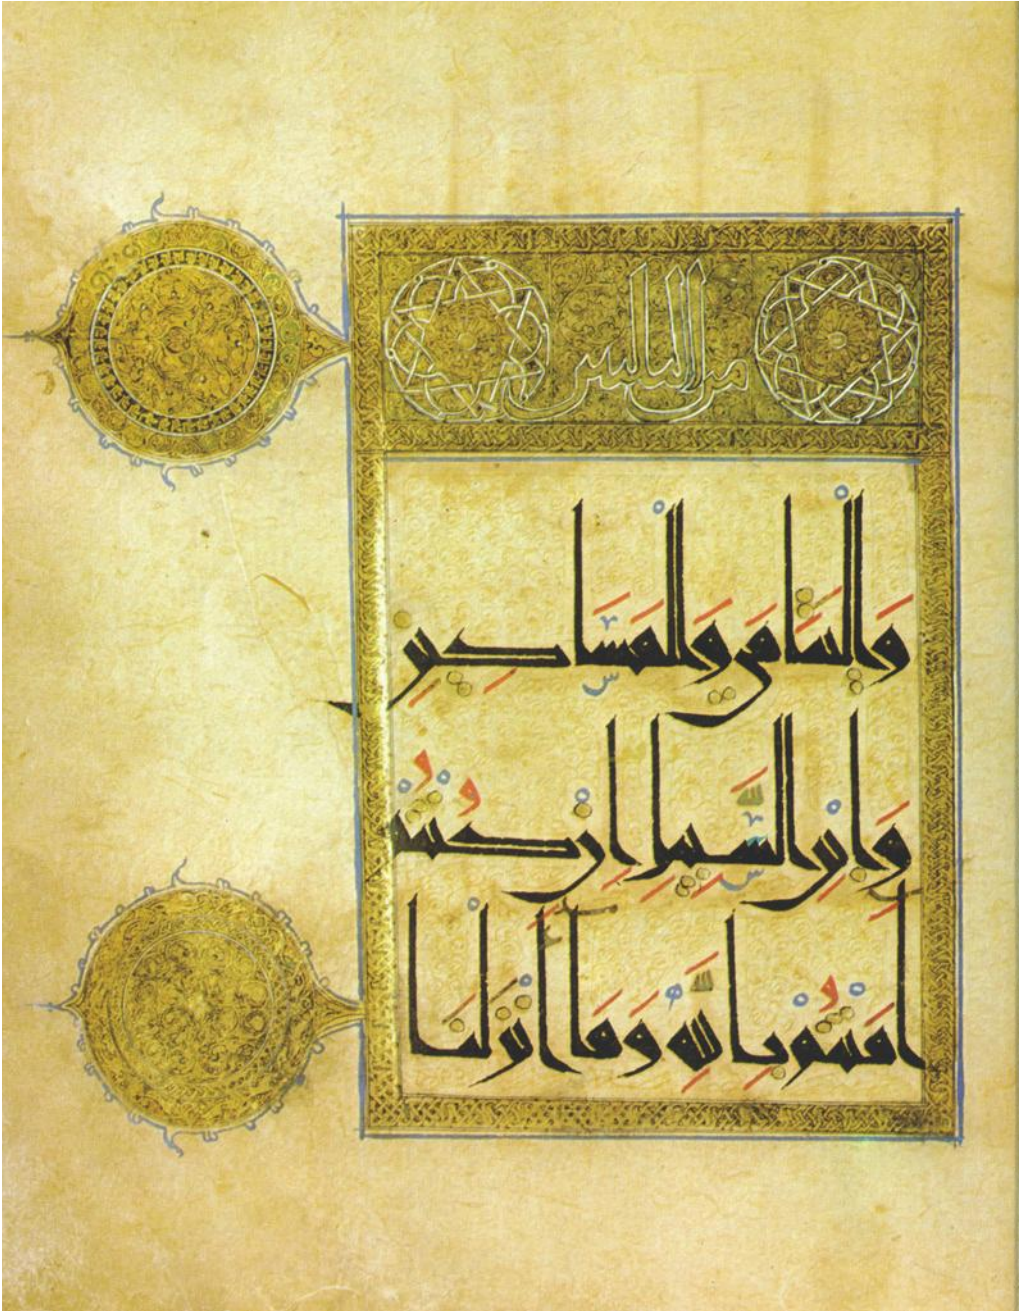 من الثلثين
وَالْيَتَامَى وَالْمَسَاكِينِ
وَابْنِ السَّبِيلِ إِنْ كُنْتُمْ
اٰمَنْتُمْ بِاللَّهِ وَمَا أَنْزَلْنَا